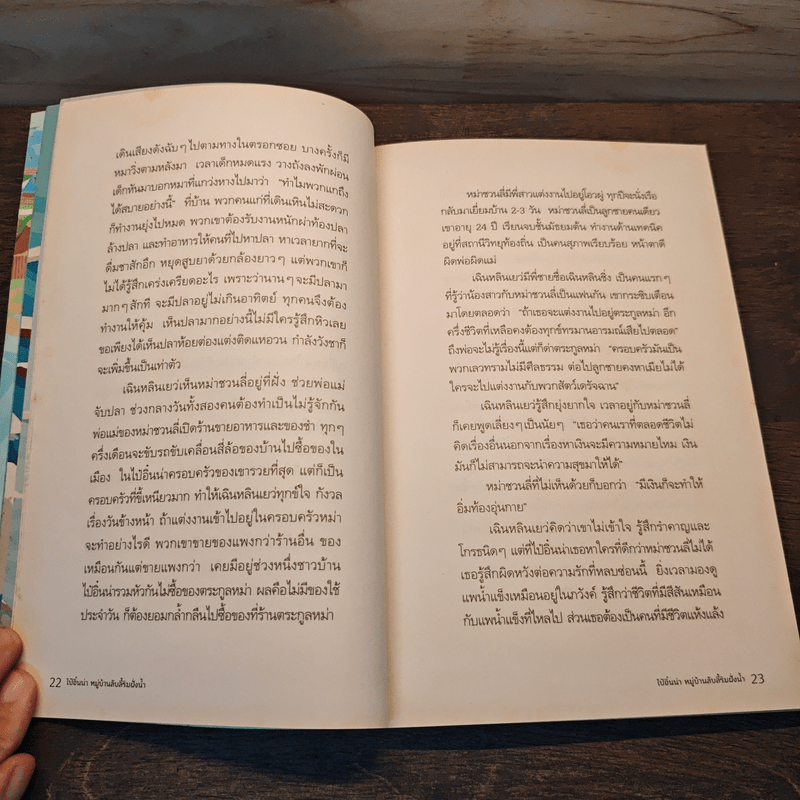 เดินเสียงดังฉับๆ ไปตามทางในตรอกซอย บางครั้งก็มี
หมาวิ่งตามหลังมา เวลาเด็กหมดแรง วางถังลงพักผ่อน
เด็กหันมาบอกหมาที่แกว่งหางไปมาว่า "ทำไมพวกแกถึง
ได้สบายอย่างนี้" ที่บ้าน พวกคนแก่ที่เดินเหินไม่สะดวก
ก็ทำงานยุ่งไปหมด พวกเขาต้องรับงานหนักผ่าท้องปลา
ล้างปลา และทำอาหารให้คนที่ไปหาปลา หาเวลายากที่จะ
ดื่มชาสักอึก หยุดสูบยาด้วยกล้องยาวๆ แต่พวกเขาก็
ไม่ได้รู้สึกเคร่งเครียดอะไร เพราะว่านานๆ จะมีปลามา
มากๆ สักที จะมีปลาอยู่ไม่เกินอาทิตย์ ทุกคนจึงต้อง
ทำงานให้คุ้ม เห็นปลามากอย่างนี้ไม่มีใครรู้สึกหิวเลย
ขอเพียงได้เห็นปลาห้อยต่องแต่งติดแหอวน กำลังวังชาก็
จะเพิ่มขึ้นเป็นเท่าตัว
เฉินหลินเยว่เห็นหม่าชวนลี่อยู่ที่ฝั่ง ช่วยพ่อแม่
จับปลา ช่วงกลางวันทั้งสองคนต้องทำเป็นไม่รู้จักกัน
พ่อแม่ของหม่าชวนลี่เปิดร้านขายอาหารและของชำ ทุกๆ
ครึ่งเดือนจะขับรถขับเคลื่อนสี่ล้อของบ้านไปซื้อของใน
เมือง ในไป๋อิ๋นน่าครอบครัวของเขารวยที่สุด แต่ก็เป็น
ครอบครัวที่ขี้เหนียวมาก ทำให้เฉินหลินเยว่ทุกข์ใจ กังวล
เรื่องวันข้างหน้า ถ้าแต่งงานเข้าไปอยู่ในครอบครัวหม่า
จะทำอย่างไรดี พวกเขาขายของแพงกว่าร้านอื่น ของ
เหมือนกันแต่ขายแพงกว่า เคยมีอยู่ช่วงหนึ่งชาวบ้าน
ไป๋อิ๋นน่ารวมหัวกันไม่ซื้อของตระกูลหม่า ผลคือไม่มีของใช้
ประจำวัน ก็ต้องยอมกล้ำกลืนไปซื้อของที่ร้านตระกูลหม่า
22 ไป๋อิ๋นน่า หมู่บ้านลับลี้ริมฝั่งน้ำ
หม่าชวนลี่มีพี่สาวแต่งงานไปอยู่โอวผู่ ทุกปีจะนั่งเรือ
กลับมาเยี่ยมบ้าน 2-3 วัน หม่าชวนลี่เป็นลูกชายคนเดียว
เขาอายุ 24 ปี เรียนจบชั้นมัธยมต้น ทำงานด้านเทคนิค
อยู่ที่สถานีวิทยุท้องถิ่น เป็นคนสุภาพเรียบร้อย หน้าตาดี
ผิดพ่อผิดแม่
เฉินหลินเยว่มีพี่ชายชื่อเฉินหลินซิ่ง เป็นคนแรกๆ
ที่รู้ว่าน้องสาวกับหม่าชวนลี่เป็นแฟนกัน เขากระซิบเตือน
มาโดยตลอดว่า "ถ้าเธอจะแต่งงานไปอยู่ตระกูลหม่า อีก
ครึ่งชีวิตที่เหลือคงต้องทุกข์ทรมานอารมณ์เสียไปตลอด"
ถึงพ่อจะไม่รู้เรื่องนี้แต่ก็ด่าตระกูลหม่า "ครอบครัวมันเป็น
พวกเลวทรามไม่มีศีลธรรม ต่อไปลูกชายคงหาเมียไม่ได้
ใครจะไปแต่งงานกับพวกสัตว์เดรัจฉาน"
เฉินหลินเยว่รู้สึกยุ่งยากใจ เวลาอยู่กับหม่าชวนลี่
ก็เคยพูดเลี่ยงๆ เป็นนัยๆ "เธอว่าคนเราที่ตลอดชีวิตไม่
คิดเรื่องอื่นนอกจากเรื่องหาเงินจะมีความหมายไหม เงิน
มันก็ไม่สามารถจะนำความสุขมาให้ได้"
หม่าชวนลี่ที่ไม่เห็นด้วยก็บอกว่า "มีเงินก็จะทำให้
อิ่มท้องอุ่นกาย"
เฉินหลินเยว่คิดว่าเขาไม่เข้าใจ รู้สึกรำคาญและ
โกรธนิดๆ แต่ที่ไป๋อิ๋นน่าเธอหาใครที่ดีกว่าหม่าชวนลี่ไม่ได้
เธอรู้สึกผิดหวังต่อความรักที่หลบซ่อนนี้ ยิ่งเวลามองดู
แพน้ำแข็งเหมือนอยู่ในภวังค์ รู้สึกว่าชีวิตที่มีสีสันเหมือน
กับแพน้ำแข็งที่ไหลไป ส่วนเธอต้องเป็นคนที่มีชีวิตแห้งแล้ง
ไป๋อิ๋นน่า หมู่บ้านลับลี้ริมฝั่งน้ำ 23